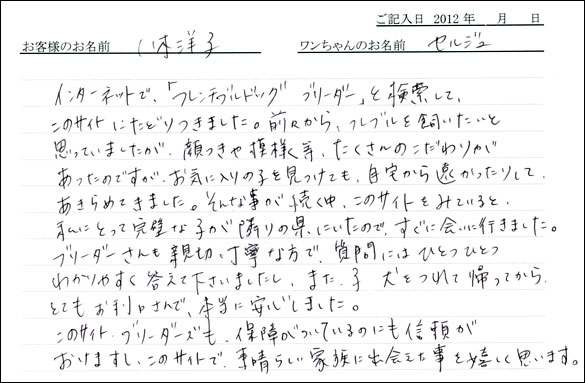 ご記入日 2012 年 月 日
お客様のお名前 洋子 ワンちゃんのお名前 セルジュ
インターネットで、「フレンチブルドッグ ブリーダー」と検索して、
このサイトにたどりつきました。前々から、フレブルを飼いたいと
思っていましたが、顔つきや模様等、たくさんのこだわりが
あったのですが、お気に入りの子を見つけても、自宅から遠かったりして、
あきらめてきました。そんな事が続く中、このサイトをみていると、
私にとって完璧な子が隣りの県にいたので、すぐに会いに行きました。
ブリーダーさんも親切、丁寧な方で、質問にはひとつひとつ
わかりやすく答えて下さいましたし、また、子犬をつれて帰ってから
とてもお利口さんで、本当に安心しました。
このサイト、ブリーダーズも、保障がついているのにも信頼が
おけますし、このサイトで、事晴らしい家族に出会えた事を嬉しく思います。